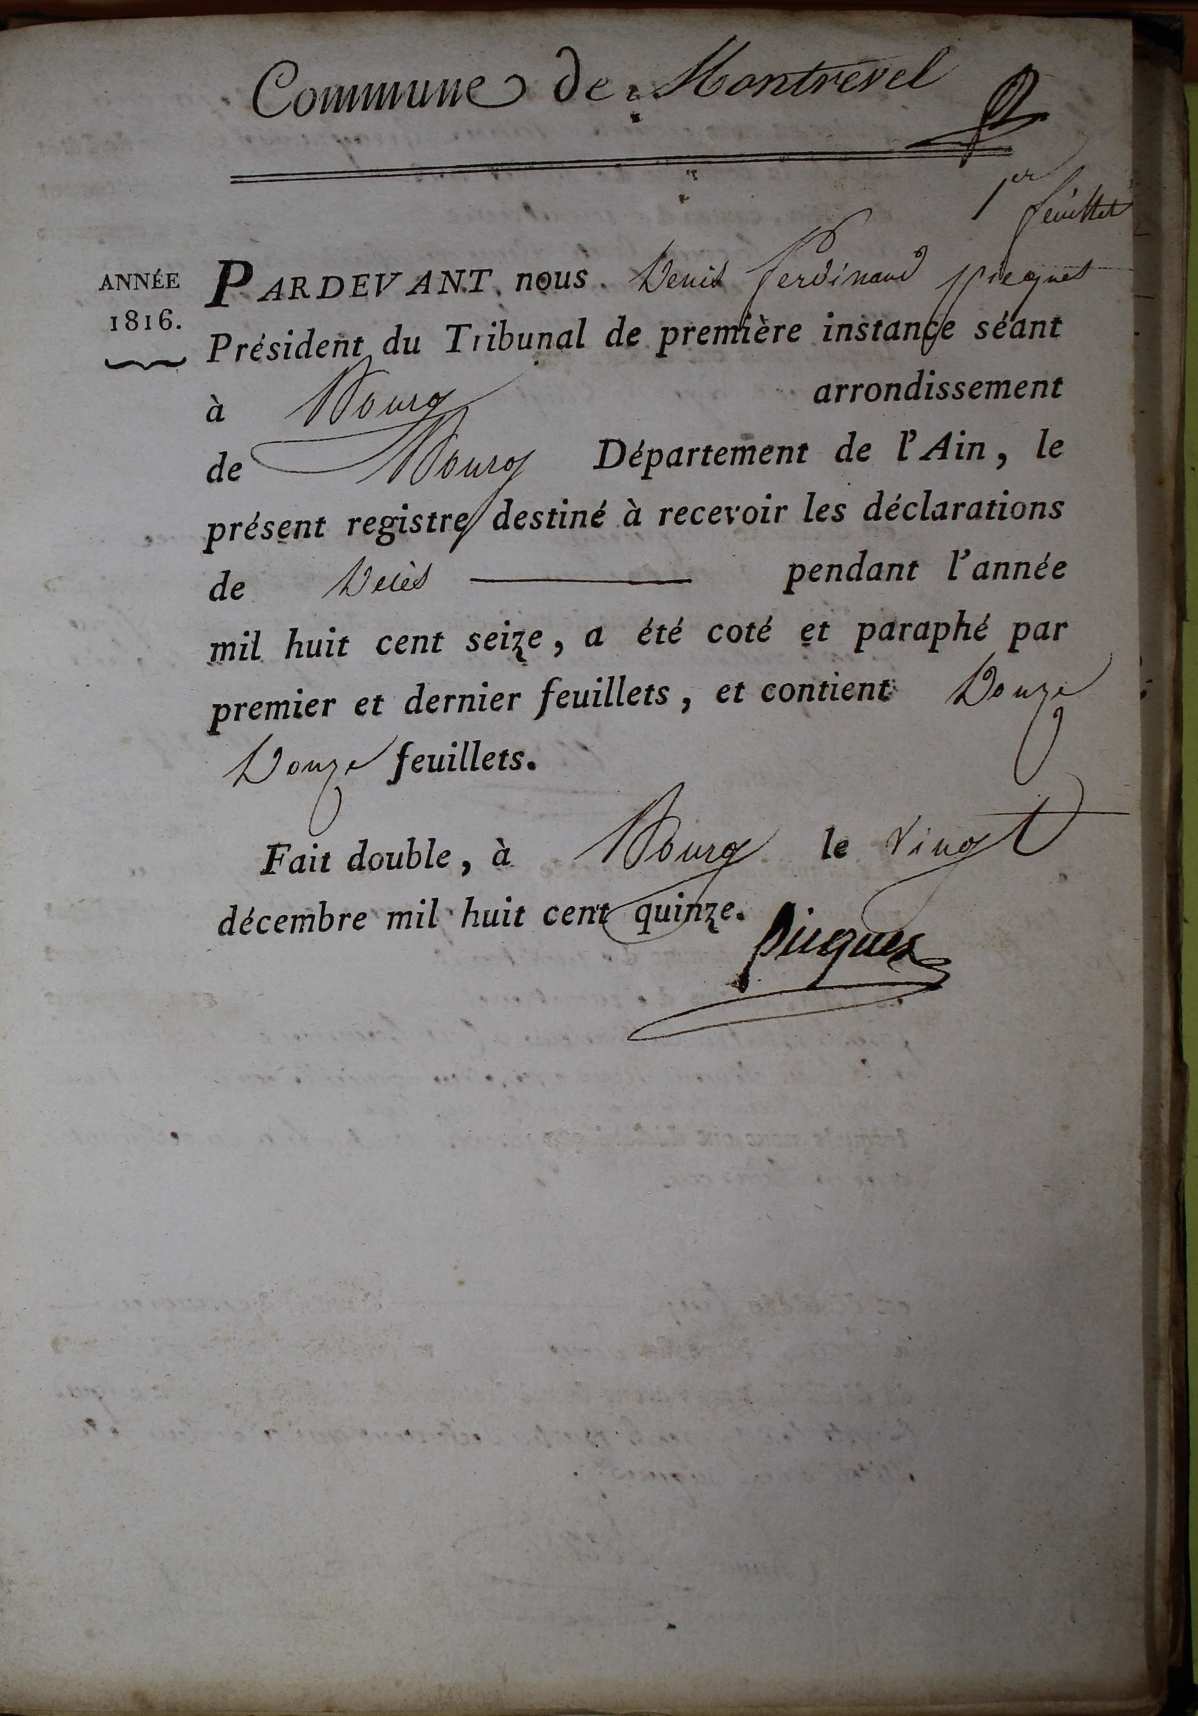 Commune de Montrevel
1er
feuillet
ANNÉE
1816.
PARDEVANT nous Denis Ferdinand Picquet
Président du Tribunal de première instance séant
à Bourg arrondissement
de Bourg Département de l'Ain, le
présent registre destiné à recevoir les déclarations
de Décès pendant l'année
mil huit cent seize, a été coté et paraphé par
premier et dernier feuillets, et contient Douze
Douze feuillets.
Fait double, à Bourg le vingt
décembre mil huit cent quinze.
Picquet